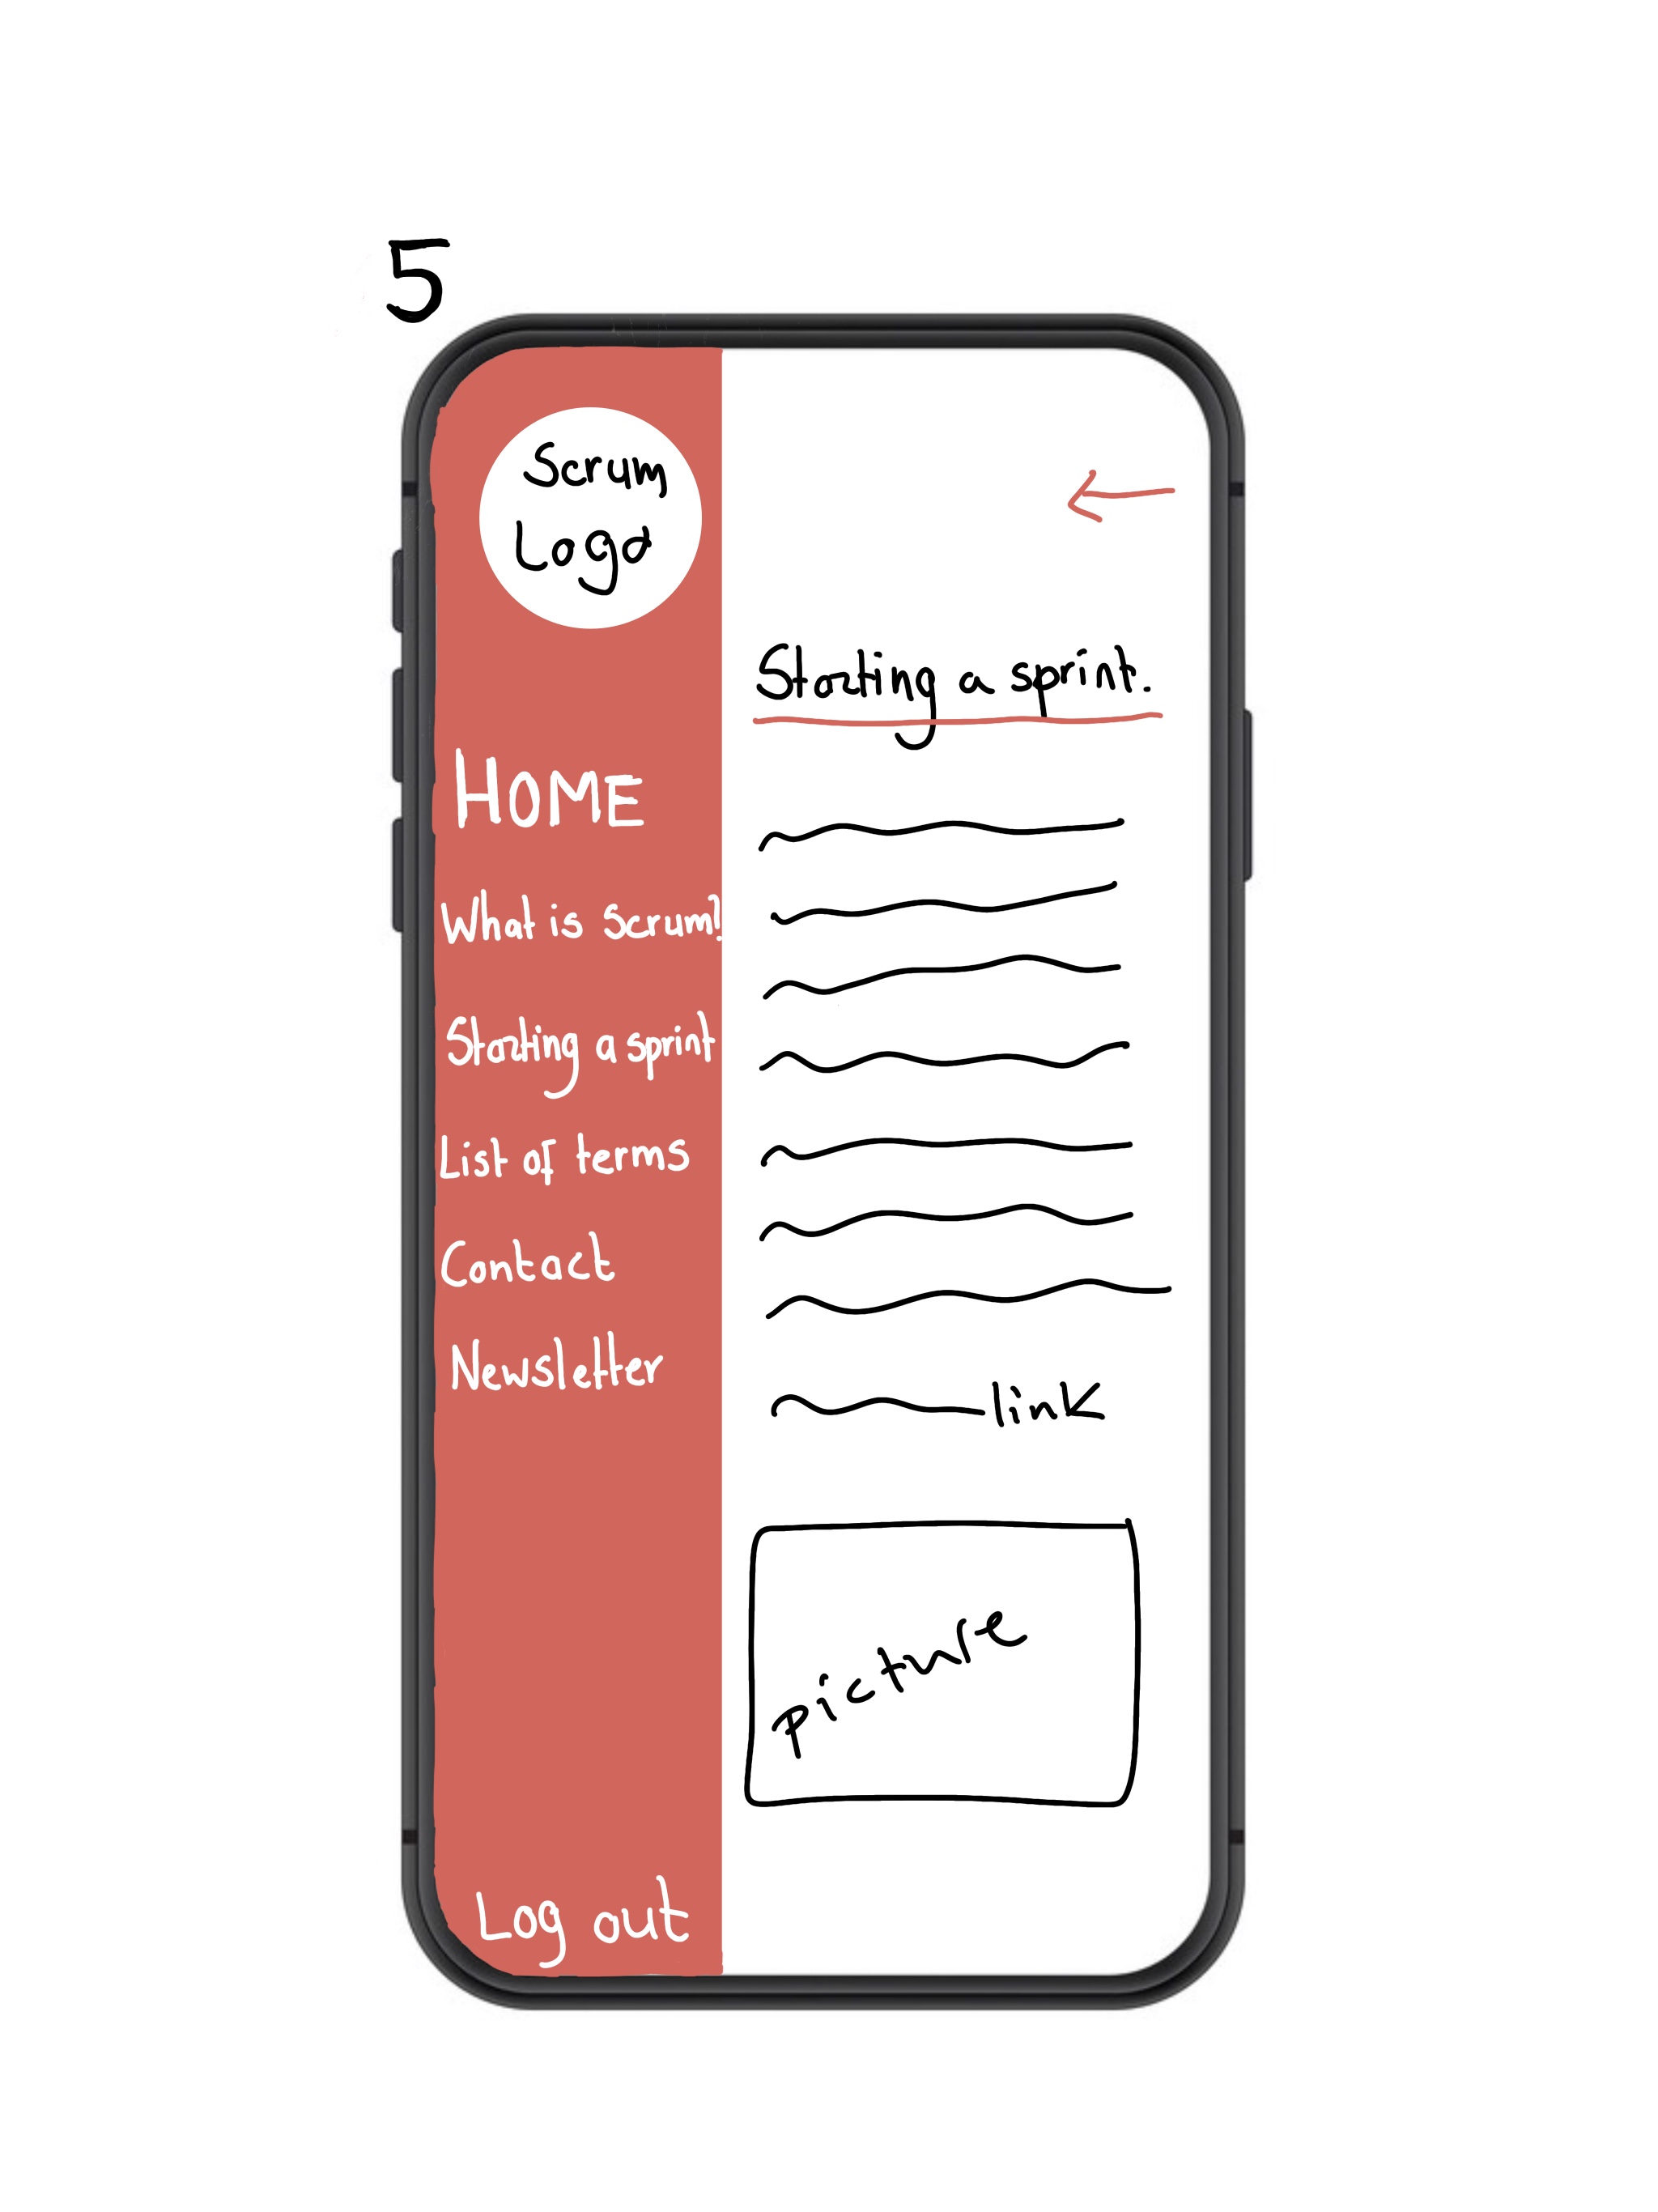 5
Scrum
Logo
HOME
What is Scrum?
Starting a sprint
List of terms
Contact
Newsletter
Log out
Starting a sprint.
link
picture